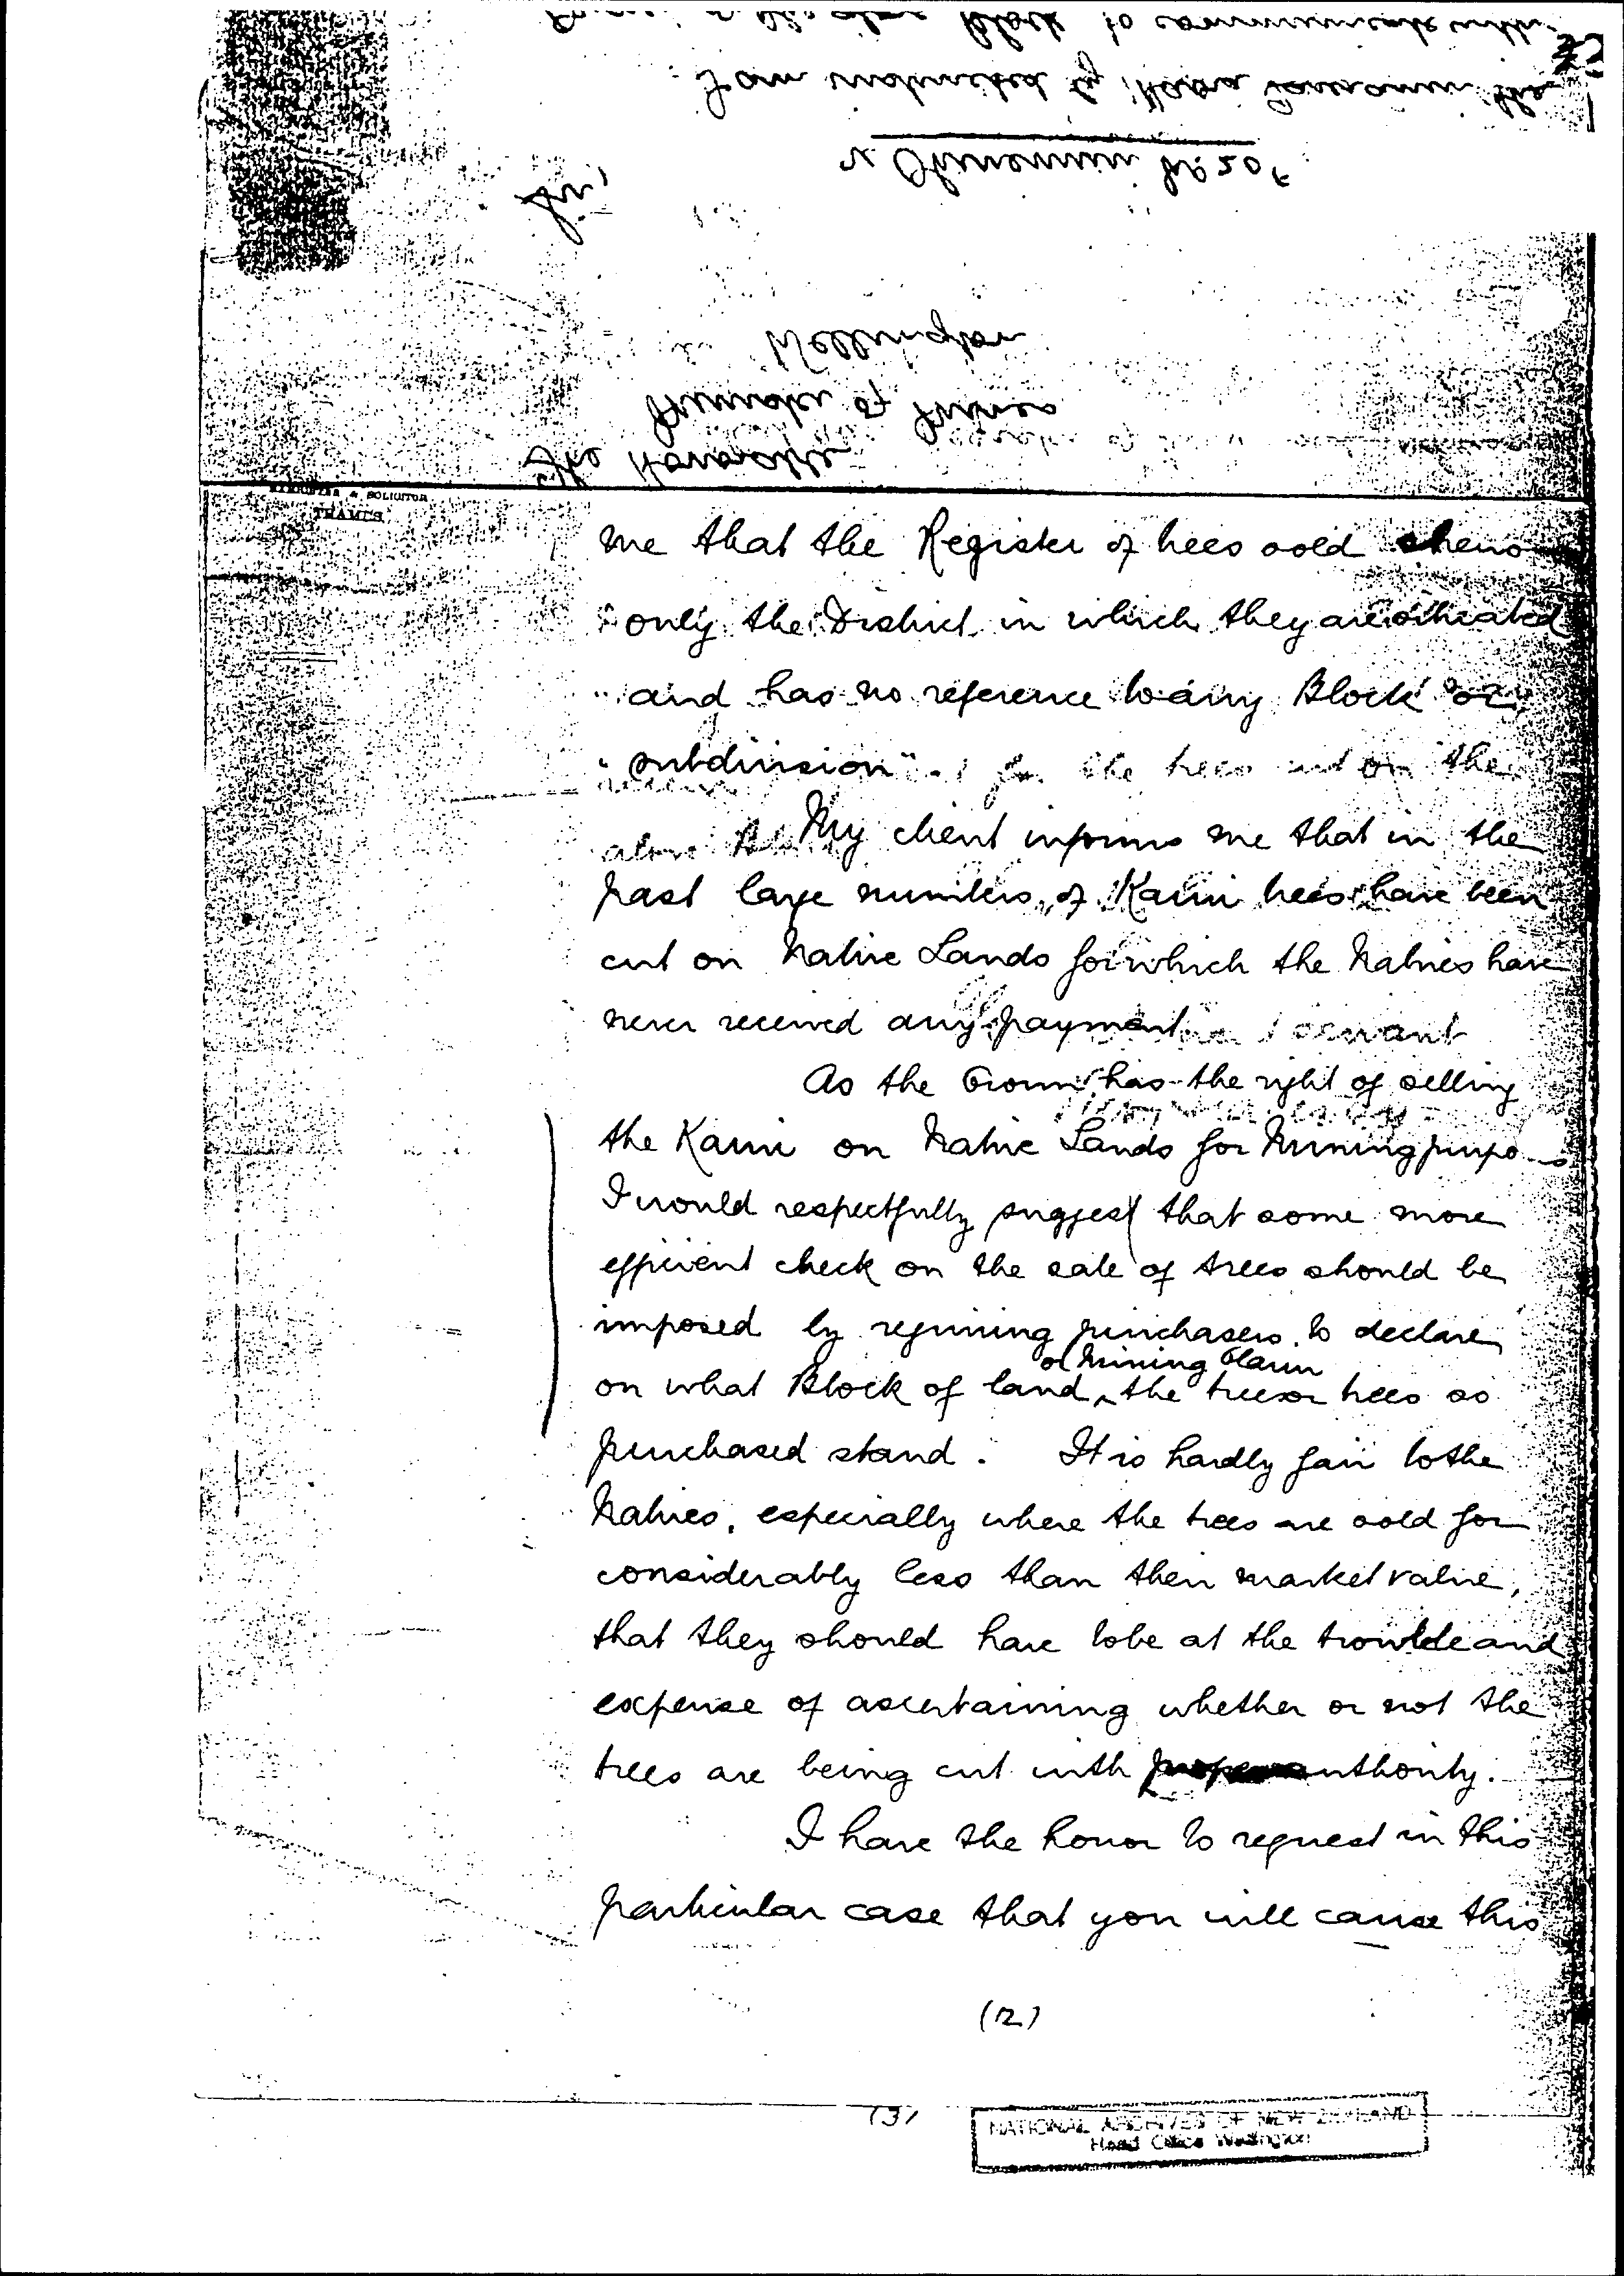 to communicate with
I am instructed by the
re Ohinemuri No 20
Sir,
Wellington
Minister of Mines
The Honorable
BARRISTER & SOLICITOR
THAMES
me that the Register of trees sold shews
"only the District in which they are situated
"and has no reference to any Block or
"subdivision"
for the trees cut on the
My client informs me that in the
above
past large numbers of Kauri trees have been
cut on Native Lands for which the Natives have
never received any payment
servant
As the Crown has the right of selling
the Kauri on Native Lands for Mining purpo
I would respectfully suggest that some more
efficient check on the sale of trees should be
imposed by requiring purchasers to declare
or Mining Claim
on what Block of land ^ the tree or trees so
purchased stand. It is hardly fair to the
Natives, especially where the trees are sold for
considerably less than their market value,
that they should have to be at the trouble and
expense of ascertaining whether or not the
trees are being cut with proper authority.
I have the honor to request in this
particular case that you will cause this
(2)
(3)
NATIONAL ARCHIVES OF NEW ZEALAND
Head Office Wellington